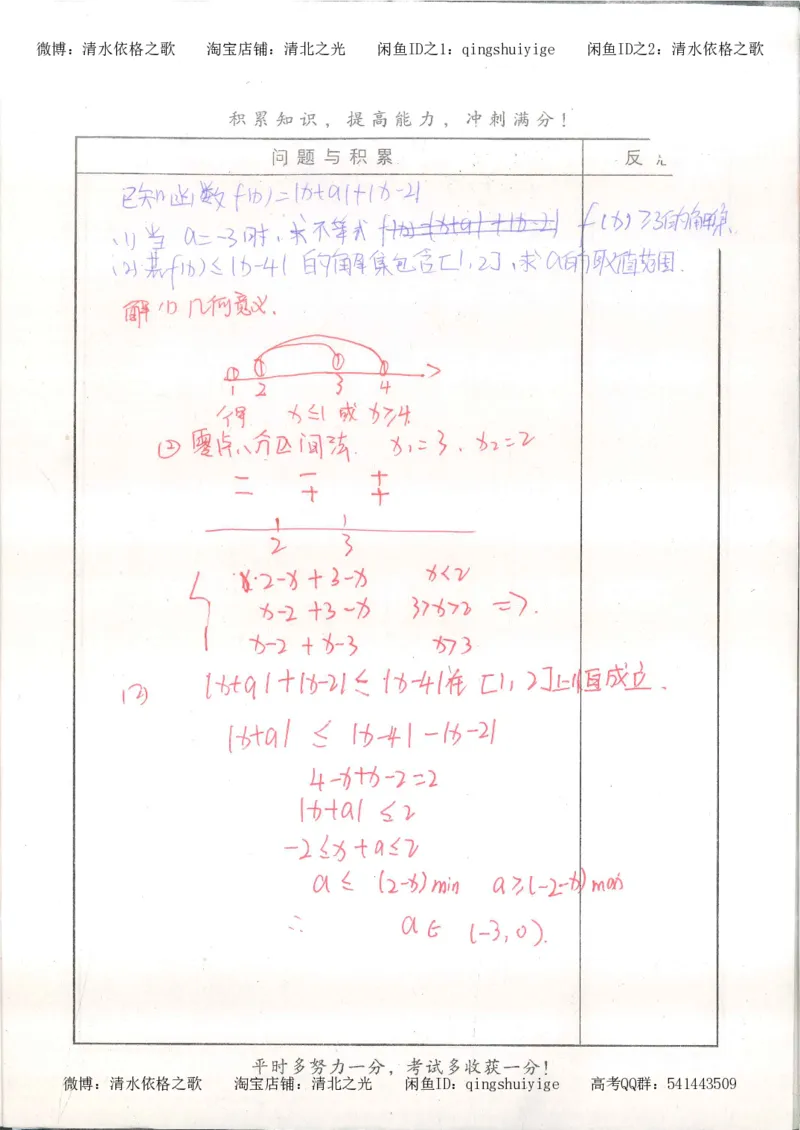 微博：清水依格之歌 淘宝店铺：清北之光 闲鱼ID之1：qingshuiyige 闲鱼ID之2：清水依格之歌
积累知识，提高能力，冲刺满分！
问题与积累 反
已知函数f(x)=|x+a|+|x-2|
(1)当 a=-3时，求不等式 f(x)≥3的解集.
(2)若f(x)≤|x-4| 的解集包含[1,2],求a的取值范围.
解(1) ①几何意义.
① ① ① ①
1 2 3 4
得 x≤1 或 x≥4
② 零点、分区间法. x₁=3、x₂=2
- - +
- + +
2 3
2-x+3-x x<2
x-2+3-x 3>x>2 =>.
x-2+x-3 x>3
(2) |x+a|+|x-2|≤|x-4|在[1,2]上恒成立.
|x+a| ≤ |x-4|-|x-2|
4-x+x-2=2
|x+a| ≤2
-2≤x+a≤2
a≤ (2-x)min a≥(-2-x)max
∴ a∈ (-3,0).
平时多努力一分，考试多收获一分！
微博：清水依格之歌 淘宝店铺：清北之光 闲鱼ID：qingshuiyige 高考QQ群：541443509